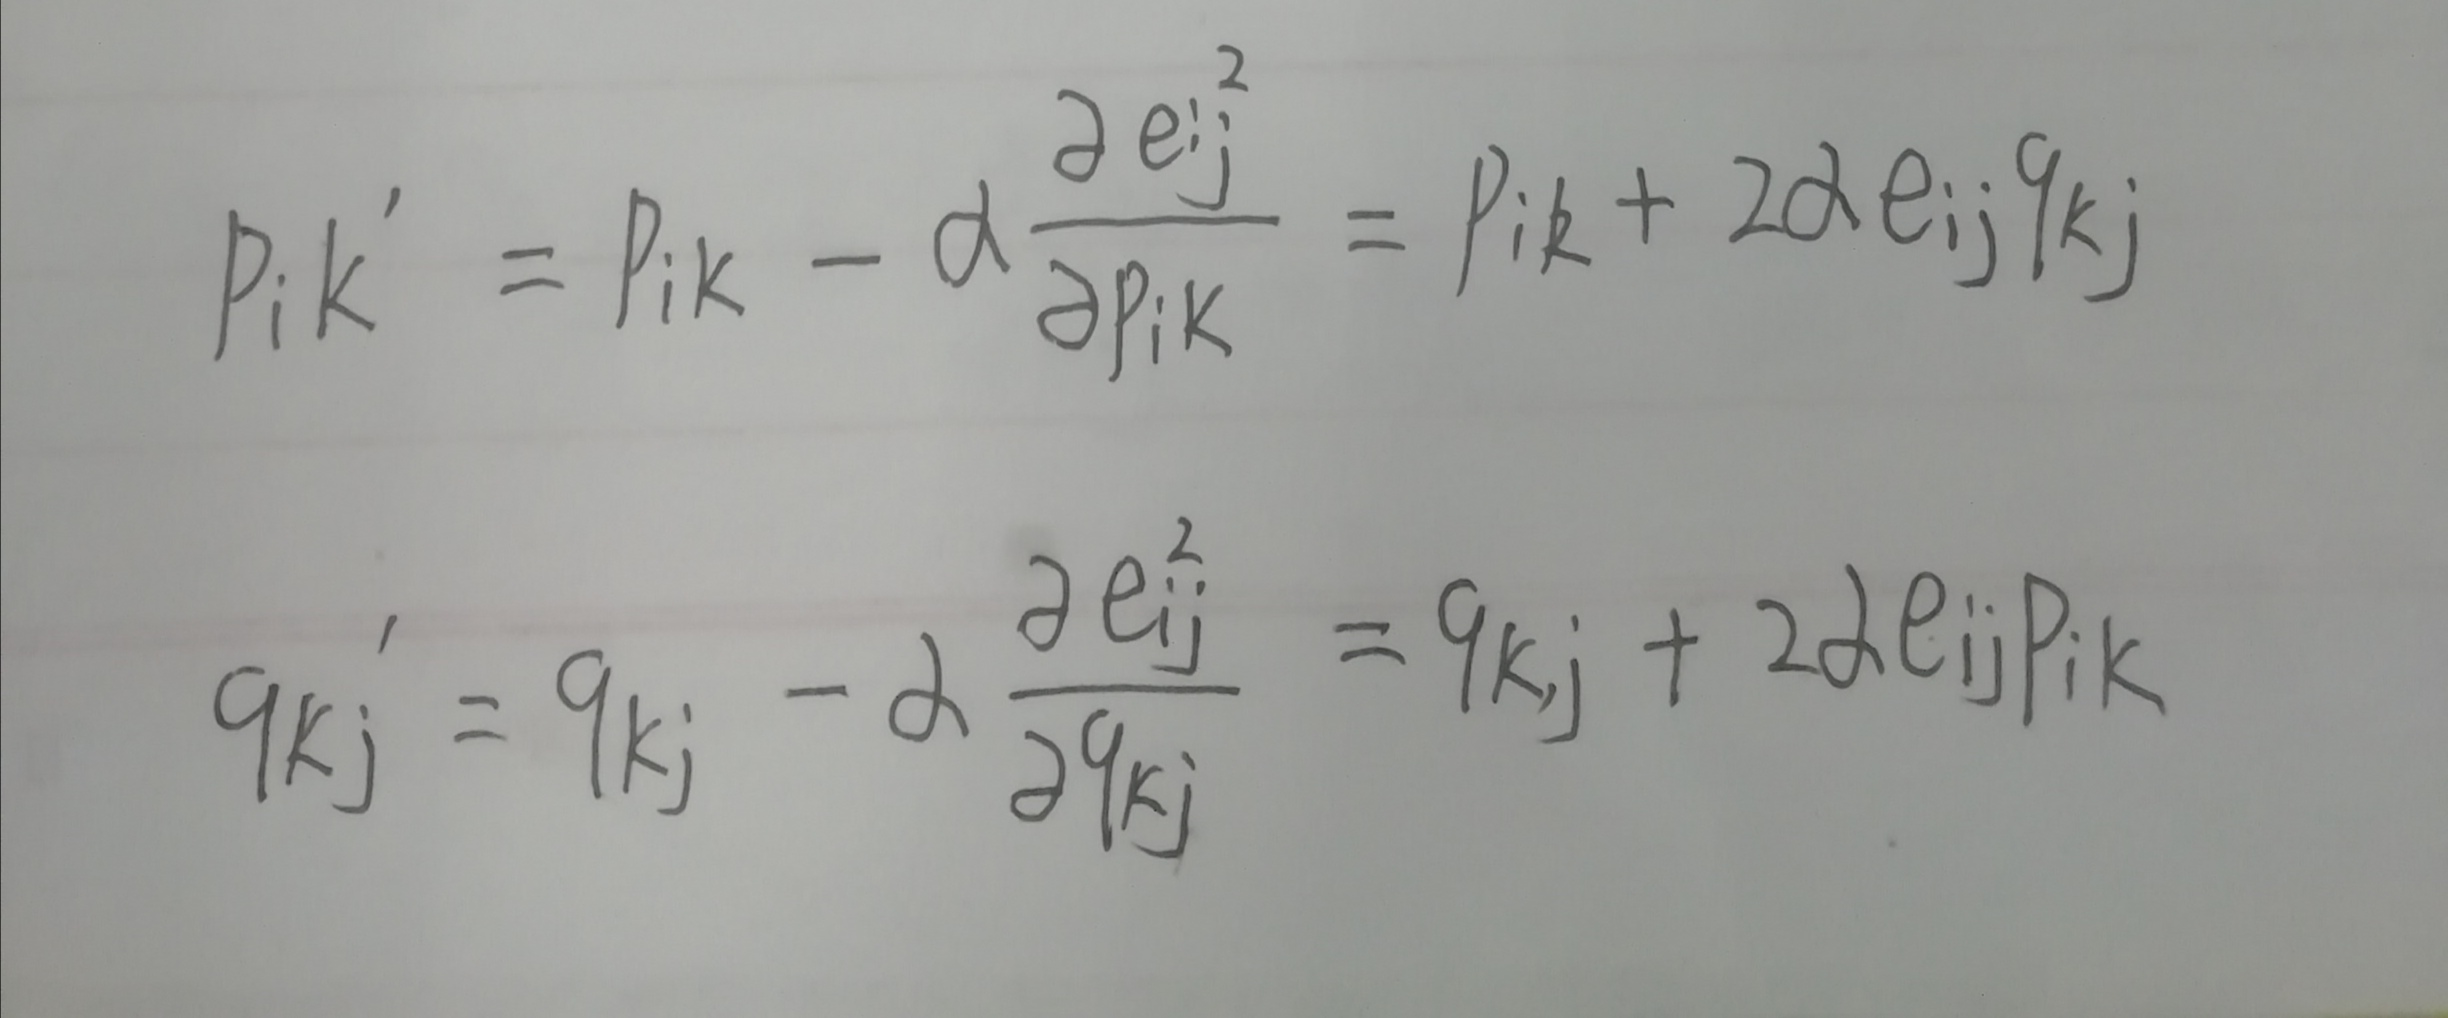 p_{ik}' = p_{ik} - α \frac{∂e_{ij}^2}{∂p_{ik}} = p_{ik} + 2αe_{ij}q_{kj}
q_{kj}' = q_{kj} - α \frac{∂e_{ij}^2}{∂q_{kj}} = q_{k,j} + 2αe_{ij}p_{ik}